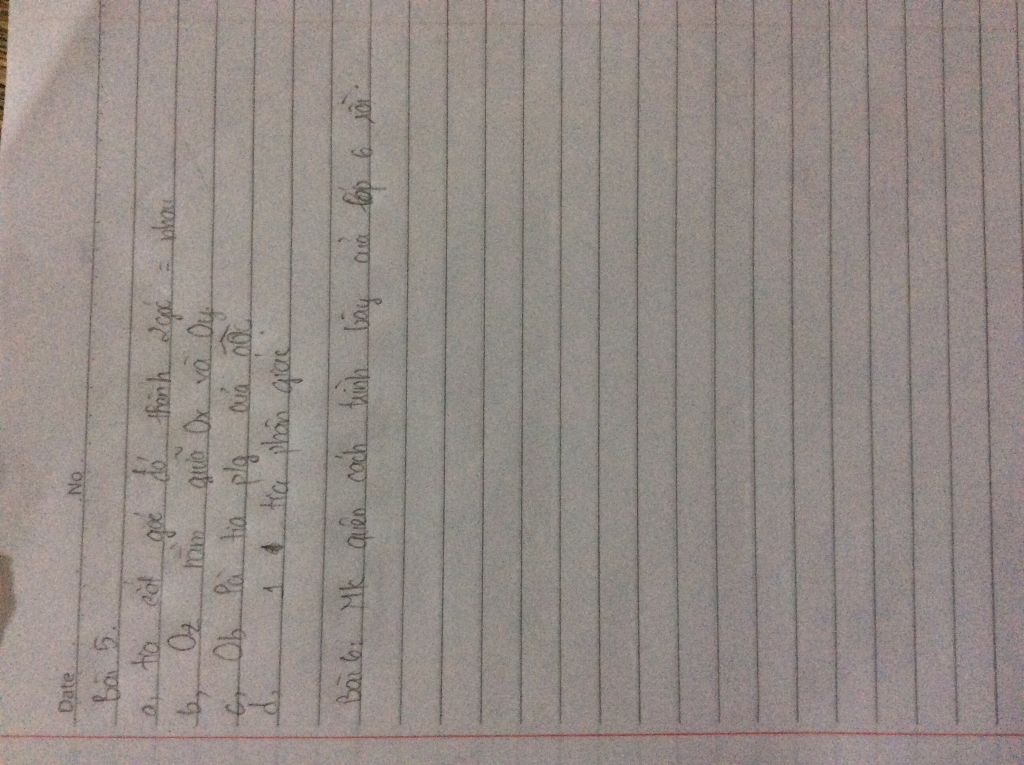 Date No
Bài 5.
a, tia cắt góc đó thành 2 góc = nhau
b, Oz nằm giữa Ox và Oy
c, Ob là tia p/g của
d. 1 tia phân giác
Bài 6: Mk quên cách trình bày của lớp 6 rồi.